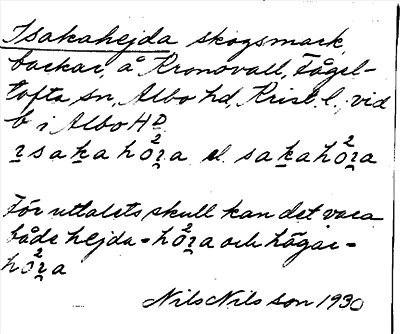 Isakahejda skogsmark,
backar, å Kronovall, Fågel-
tofta sn, Albo hd, Krist. l., vid
b i Albo HD
ɪsakahö²ɪa el. sakahö²ɪa
För uttalets skull kan det vara
både hejda - hö²ɪa och högar -
hö²ɪa
Nils Nilsson 1930